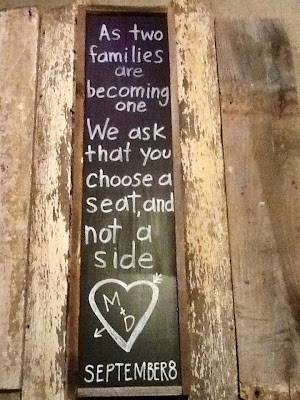 As two
families
are
becoming
one
We ask
that you
choose a
seat, and
not a
side
M
+
D
SEPTEMBER 8